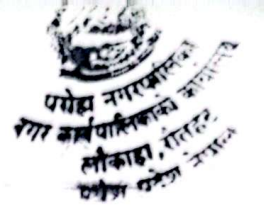 परोहा नगरपालिका
नगर कार्यपालिकाको कार्यालय
लौकाहा, रौतहट
प्रदेश नेपाल